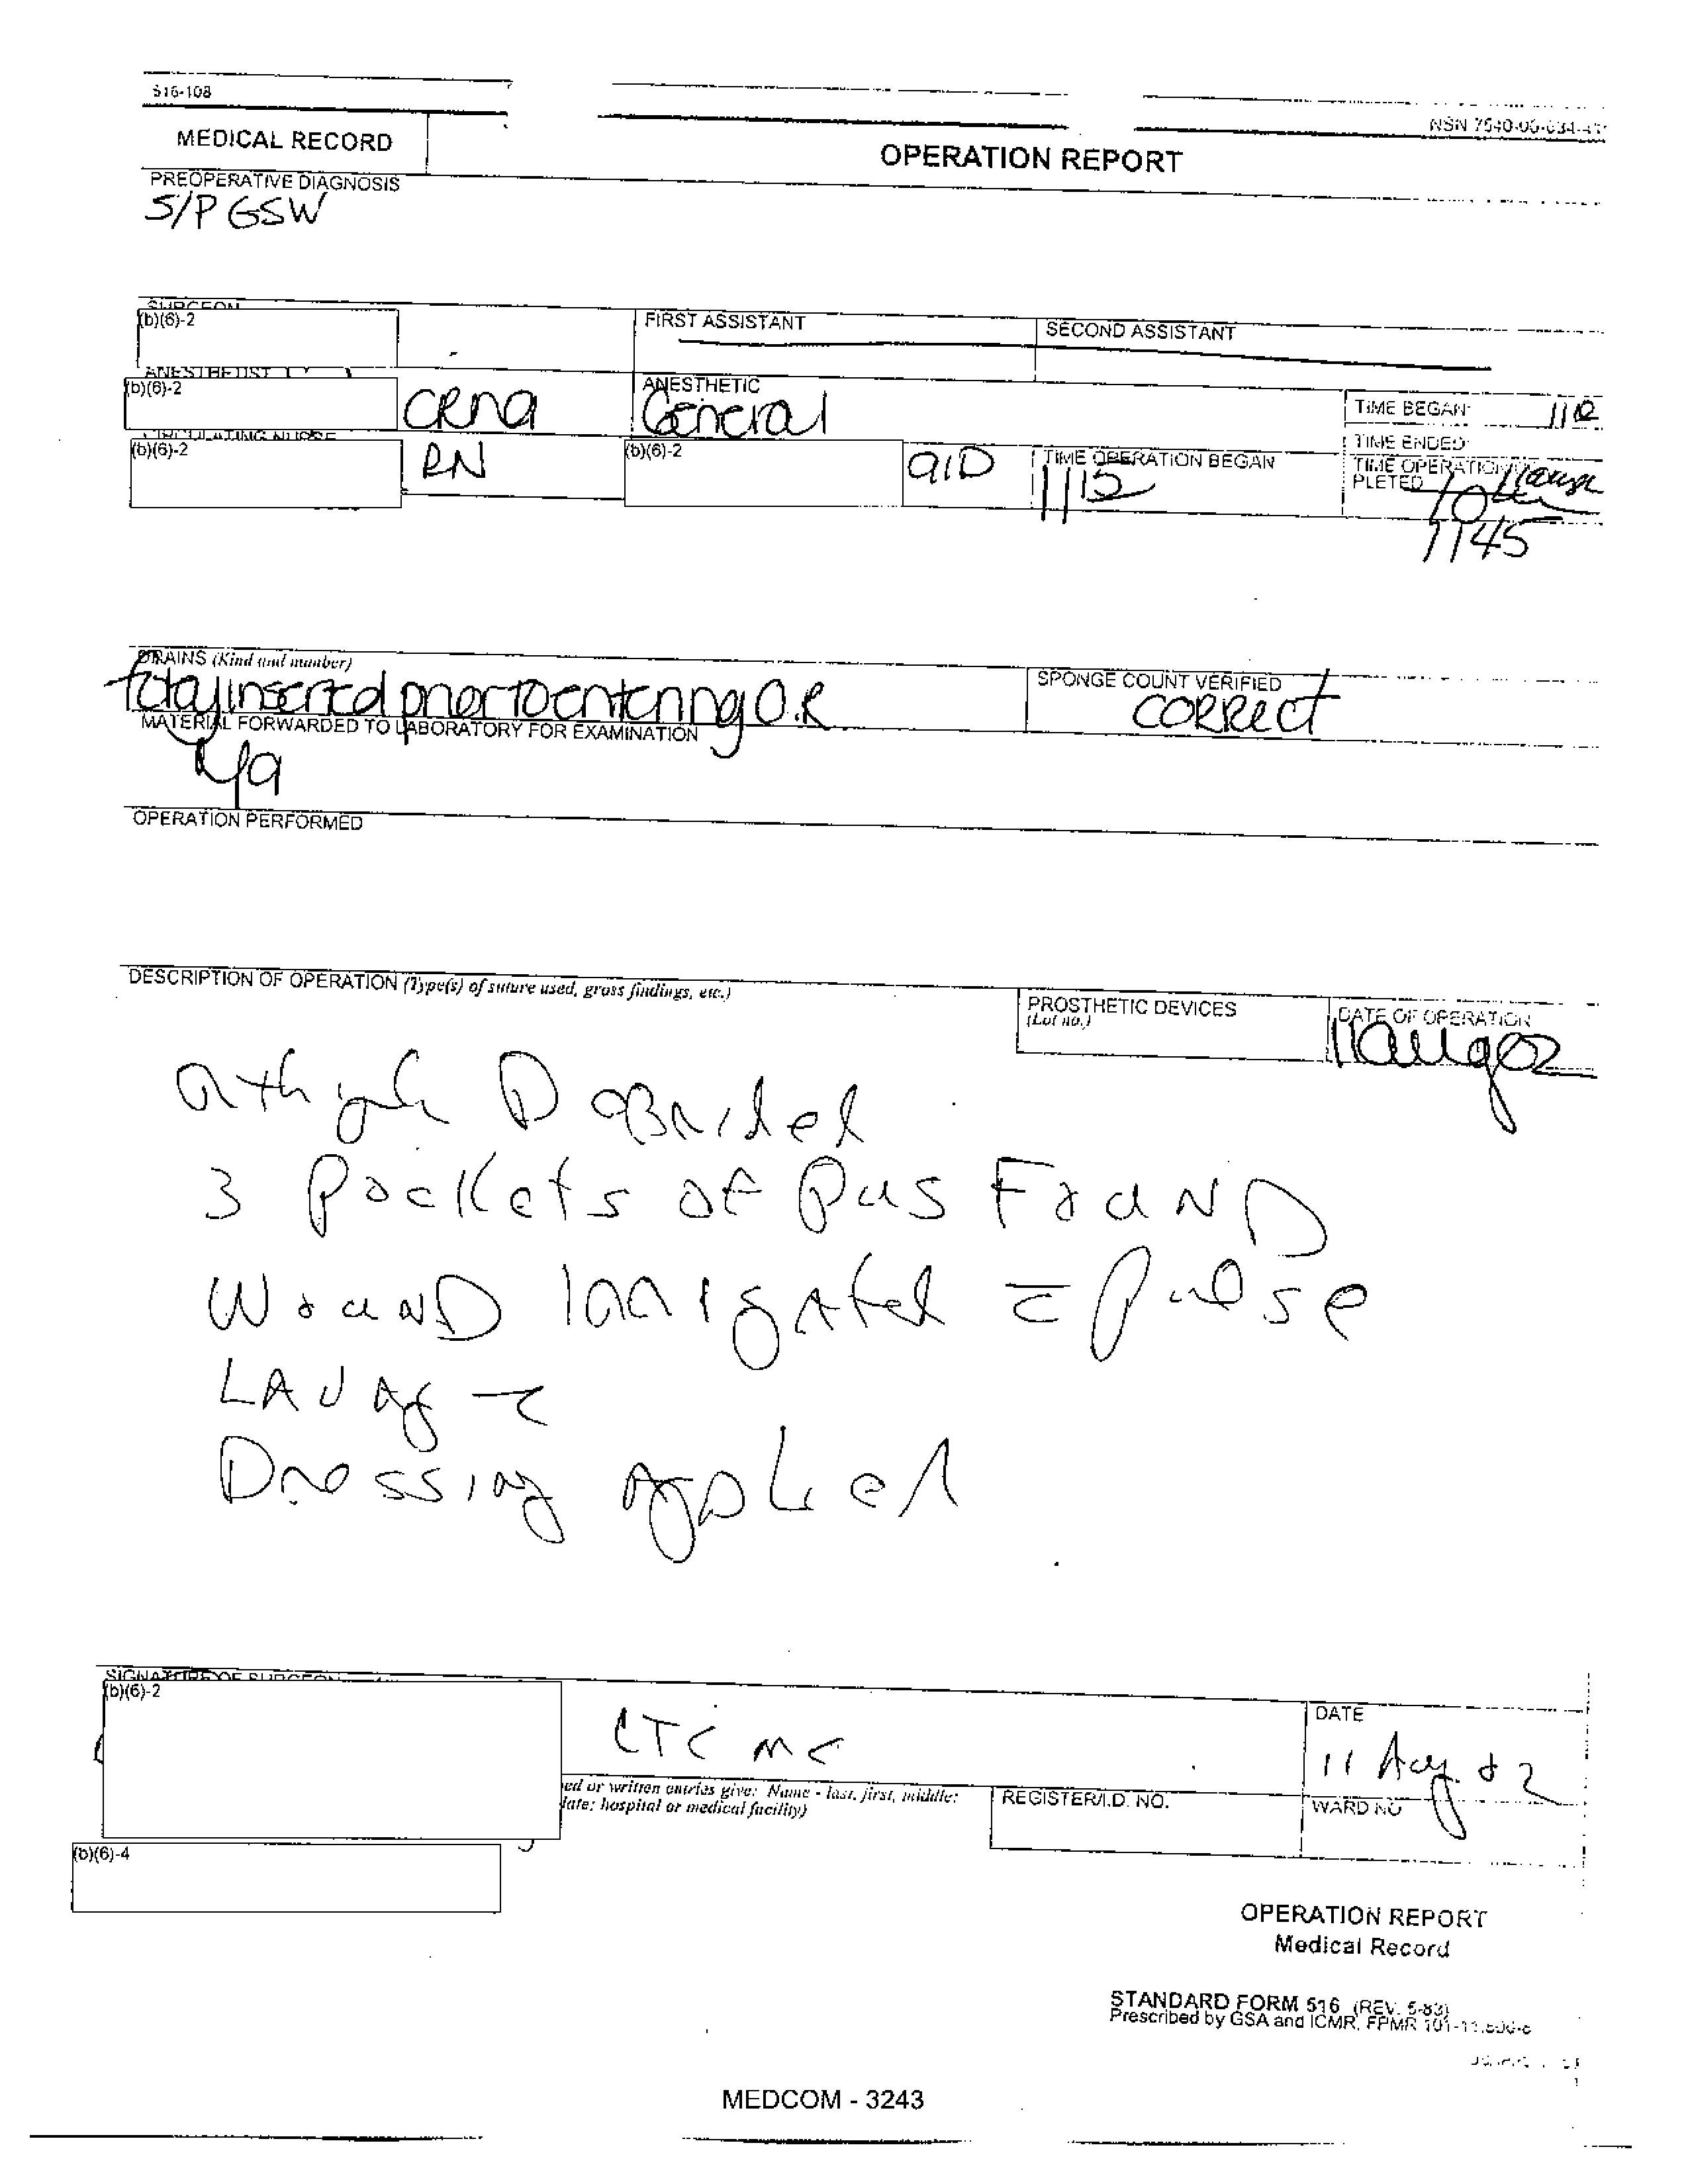 516-108
NSN 7540-00-634-41
MEDICAL RECORD
OPERATION REPORT
PREOPERATIVE DIAGNOSIS
S/P GSW
SURGEON
(b)(6)-2
FIRST ASSISTANT
SECOND ASSISTANT
ANESTHETIST
(b)(6)-2
CRNA
ANESTHETIC
General
TIME BEGAN:
TIME ENDED:
CIRCULATING NURSE
(b)(6)-2
RN
(b)(6)-2
91D
TIME OPERATION BEGAN
1115
TIME OPERATION
PLETED
1145
DRAINS (Kind and number)
foley inserted prior to entering O.R
SPONGE COUNT VERIFIED
CORRECT
MATERIAL FORWARDED TO LABORATORY FOR EXAMINATION
n/a
OPERATION PERFORMED
DESCRIPTION OF OPERATION (Type(s) of suture used, gross findings, etc.)
PROSTHETIC DEVICES
(Lot no.)
DATE OF OPERATION
11aug02
thigh DeBrided
3 Pockets of Pus FouND
WouND Irrigated c̄ pulse
LAVAge
Dressing Applied
SIGNATURE OF SURGEON
(b)(6)-2
LTC MC
DATE
11 Aug 02
ed or written entries give: Name - last, first, middle:
late; hospital or medical facility)
REGISTER/I.D. NO.
WARD NO
(b)(6)-4
OPERATION REPORT
Medical Record
STANDARD FORM 516 (REV. 5-83)
Prescribed by GSA and ICMR, FPMR 101-11.806-8
MEDCOM - 3243